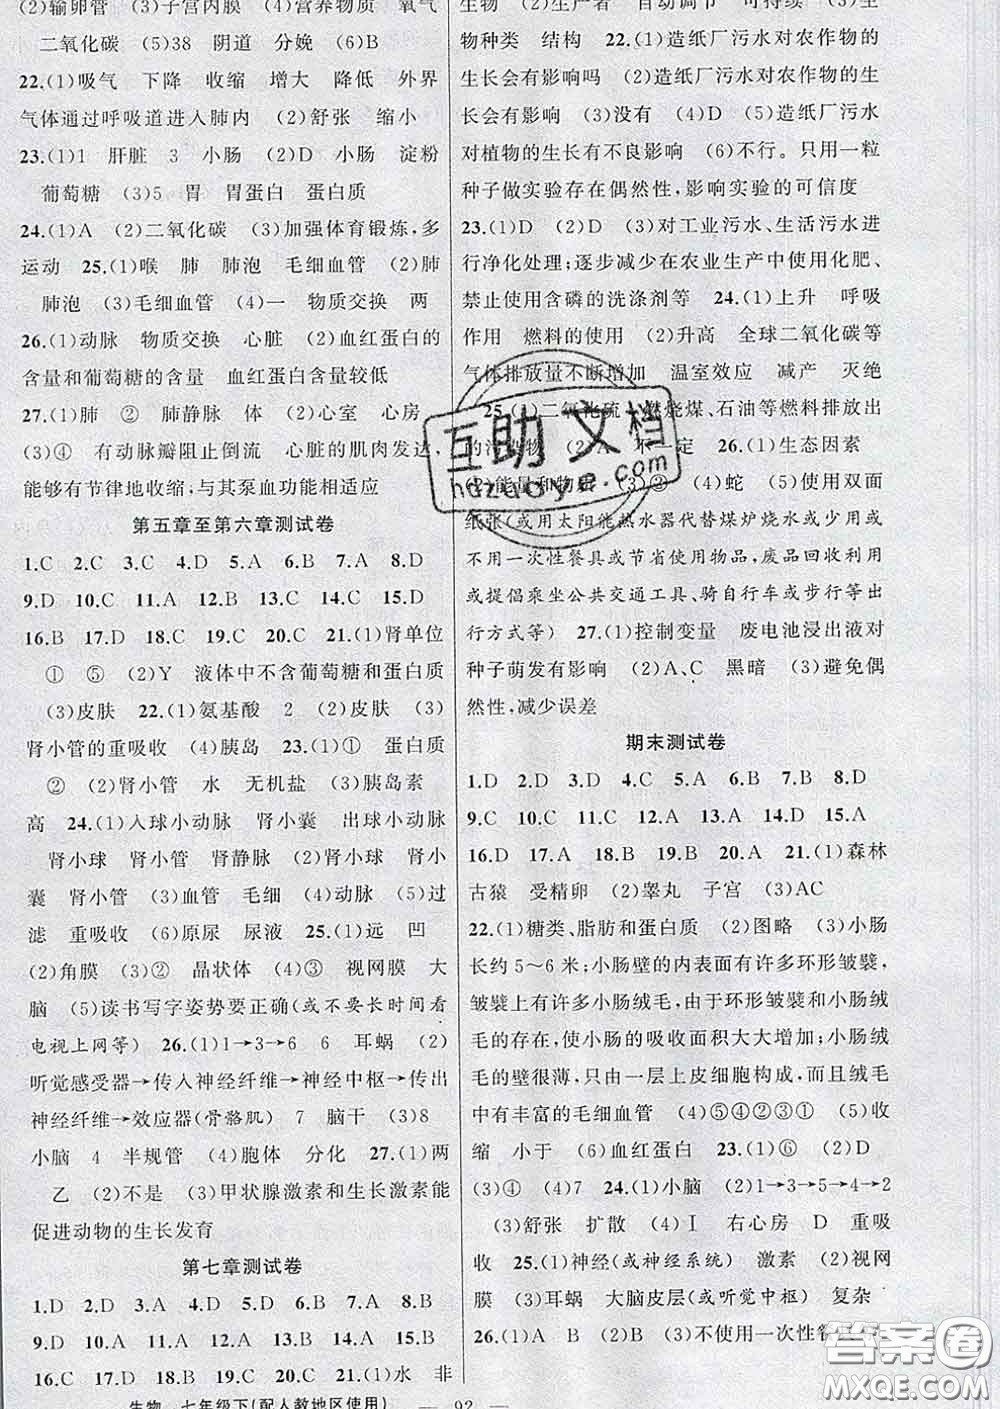 (2)输卵管 (3)子宫内膜 (4)营养物质 氧气
二氧化碳 (5)38 阴道 分娩 (6)B
22.(1)吸气 下降 收缩 增大 降低 外界
气体通过呼吸道进入肺内 (2)舒张 缩小
23.(1)1 肝脏 3 小肠 (2)D 小肠 淀粉
葡萄糖 (3)5 胃 胃蛋白 蛋白质
24.(1)A (2)二氧化碳 (3)加强体育锻炼,多
运动 25.(1)喉 肺 肺泡 毛细血管 (2)肺
肺泡 (3)毛细血管 (4)一 物质交换 两
26.(1)动脉 物质交换 心脏 (2)血红蛋白的
含量和葡萄糖的含量 血红蛋白含量较低
27.(1)肺 ② 肺静脉 体 (2)心室 心房
(3)④ 有动脉瓣阻止倒流 心脏的肌肉发达,
能够有节律地收缩,与其泵血功能相适应
第五章至第六章测试卷
1.C 2.C 3.C 4.D 5.A 6.B 7.A 8.D
9.D 10.C 11.A 12.B 13.C 14.C 15.D
16.B 17.D 18.C 19.C 20.C 21.(1)肾单位
① ⑤ (2)Y 液体中不含葡萄糖和蛋白质
(3)皮肤 22.(1)氨基酸 2 (2)皮肤 (3)
肾小管的重吸收 (4)胰岛 23.(1)① 蛋白质
② (2)肾小管 水 无机盐 (3)胰岛素
高 24.(1)入球小动脉 肾小囊 出球小动脉
肾小球 肾小管 肾静脉 (2)肾小球 肾小
囊 肾小管 (3)血管 毛细 (4)动脉 (5)过
滤 重吸收 (6)原尿 尿液 25.(1)远 凹
(2)角膜 (3)② 晶状体 (4)③ 视网膜 大
脑 (5)读书写字姿势要正确(或不要长时间看
电视上网等) 26.(1)1→3→6 6 耳蜗 (2)
听觉感受器→传入神经纤维→神经中枢→传出
神经纤维→效应器(骨骼肌) 7 脑干 (3)8
小脑 4 半规管 (4)胞体 分化 27.(1)两
乙 (2)不是 (3)甲状腺激素和生长激素能
促进动物的生长发育
第七章测试卷
1.D 2.D 3.A 4.D 5.D 6.B 7.A 8.B
9.D 10.A 11.B 12.D 13.B 14.A 15.B
16.C 17.D 18.C 19.D 20.C 21.(1)水 非
生物 (2)生产者 自动调节 可持续 (3)生
物种类 结构 22.(1)造纸厂污水对农作物的
生长会有影响吗 (2)造纸厂污水对农作物的生
长会有影响 (3)没有 (4)D (5)造纸厂污水
对植物的生长有不良影响 (6)不行。只用一粒
种子做实验存在偶然性,影响实验的可信度
23.(1)D (2)A (3)对工业污水、生活污水进
行净化处理;逐步减少在农业生产中使用化肥、
禁止使用含磷的洗涤剂等 24.(1)上升 呼吸
作用 燃料的使用 (2)升高 全球二氧化碳等
气体排放量不断增加 温室效应 减产 灭绝
25.(1)二氧化硫 燃烧煤、石油等燃料排放出
的污染物 (2)A 不一定 26.(1)生态因素
(2)能量和物质 (3)② (4)蛇 (5)使用双面
纸张(或用太阳能热水器代替煤炉烧水或少用
或不用一次性餐具或节省使用物品,废品回收利用
或提倡乘坐公共交通工具、骑自行车或步行等出
行方式等) 27.(1)控制变量 废电池浸出液对
种子萌发有影响 (2)A、C 黑暗 (3)避免偶
然性,减少误差
期末测试卷
1.D 2.D 3.D 4.C 5.A 6.B 7.B 8.D
9.C 10.C 11.A 12.A 13.A 14.A 15.A
16.D 17.A 18.A 19.B 20.A 21.(1)森林
古猿 受精卵 (2)睾丸 子宫 (3)AC
22.(1)糖类、脂肪和蛋白质 (2)图略 (3)小肠
长约5~6米;小肠壁的内表面有许多环形皱襞,
皱襞上有许多小肠绒毛,由于环形皱襞和小肠绒
毛的存在,使小肠的吸收面积大大增加;小肠绒
毛的壁很薄,只由一层上皮细胞构成,而且绒毛
中有丰富的毛细血管 (4)⑤④②③① (5)收
缩 小于 (6)血红蛋白 23.(1)⑥ (2)D
(3)④ (4)7 24.(1)小脑 (2)1→3→5→4→2
(3)舒张 扩散 (4)Ⅰ 右心房 D 重吸
收 25.(1)神经(或神经系统) 激素 (2)视网
膜 (3)耳蜗 大脑皮层(或听觉中枢) 复杂
26.(1)A B (2)B (3)不使用一次性
生物 七年级下(配人教地区使用) — 92 —
互助文档
hdzuoye.com
答案圈
MXQE.COM